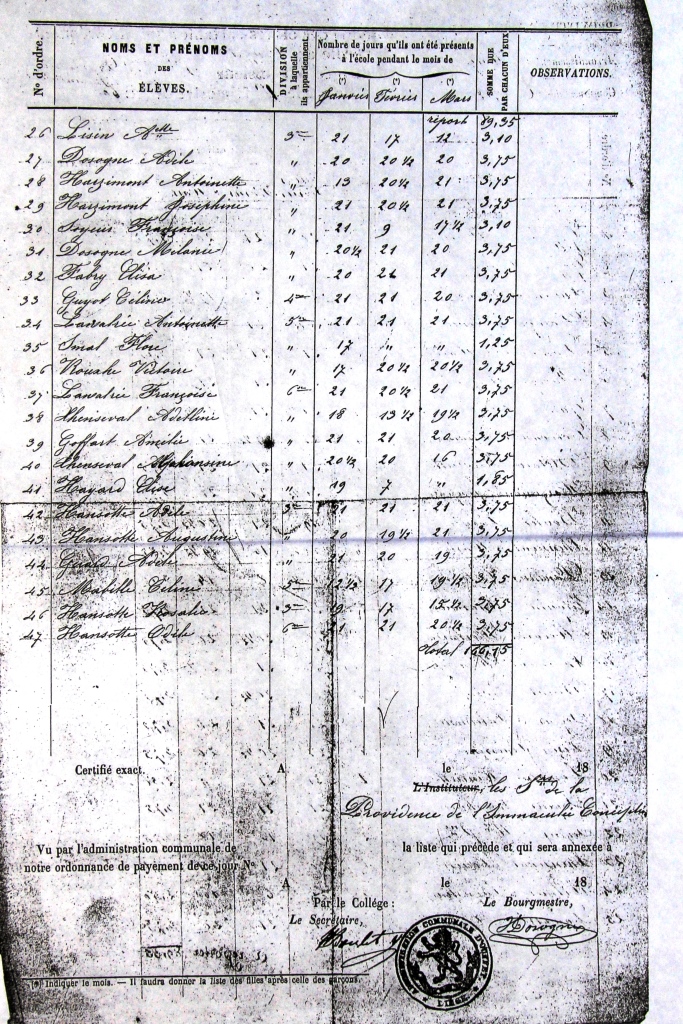 N° d'ordre.
NOMS ET PRÉNOMS
DES
ÉLÈVES.
DIVISION à laquelle ils appartiennent.
Nombre de jours qu'ils ont été présents
à l'école pendant le mois de
(*) (*) (*)
Janvier Février Mars
SOMME DUE PAR CHACUN D'EUX
OBSERVATIONS.
report 89,35
26 Lisin 3me 21 17 12 3,10
27 Dosogne Adèle " 20 20½ 20 3,75
28 Harzimont Antoinette " 13 20½ 21 3,75
29 Harzimont Joséphine " 21 20½ 21 3,75
30 Françoise " 21 9 17½ 3,10
31 Dosogne Mélanie " 20½ 21 20 3,75
32 Fabry Elisa " 20 21 3,75
33 Guyot 4me 21 21 20 3,75
34 Antoinette 5me 21 21 21 3,75
35 Smal Flore " 17 " " 1,25
36 Victoire " 17 20½ 20½ 3,75
37 Françoise 6me 21 20½ 21 3,75
38 Thenseval " 18 13½ 19½ 3,75
39 Goffart Amélie " 21 21 20 3,75
40 Thenseval Alphonsine " 20½ 20 16 3,75
41 Hayard " 19 7 " 1,85
42 Hansotte Adèle 3me 21 21 21 3,75
43 Hansotte Augustine " 20 19½ 21 3,75
44 Adèle " 21 20 19 3,75
45 Mabille Céline 5me 12½ 17 19½ 3,75
46 Hansotte Rosalie 3me 19 17 15½ 3,75
47 Hansotte Odile 6me 21 21 20½ 3,75
Total 166,15
Certifié exact. A le 18
L'Instituteur, les Srs de la
Providence de l'Immaculée Conception
Vu par l'administration communale de la liste qui précède et qui sera annexée à
notre ordonnance de payement de ce jour N°
A le 18
Par le Collége : Le Bourgmestre,
Le Secrétaire,
Dosogne
ADMINISTRATION COMMUNALE
LIÈGE
(*) Indiquer le mois. — Il faudra donner la liste des filles après celle des garçons.